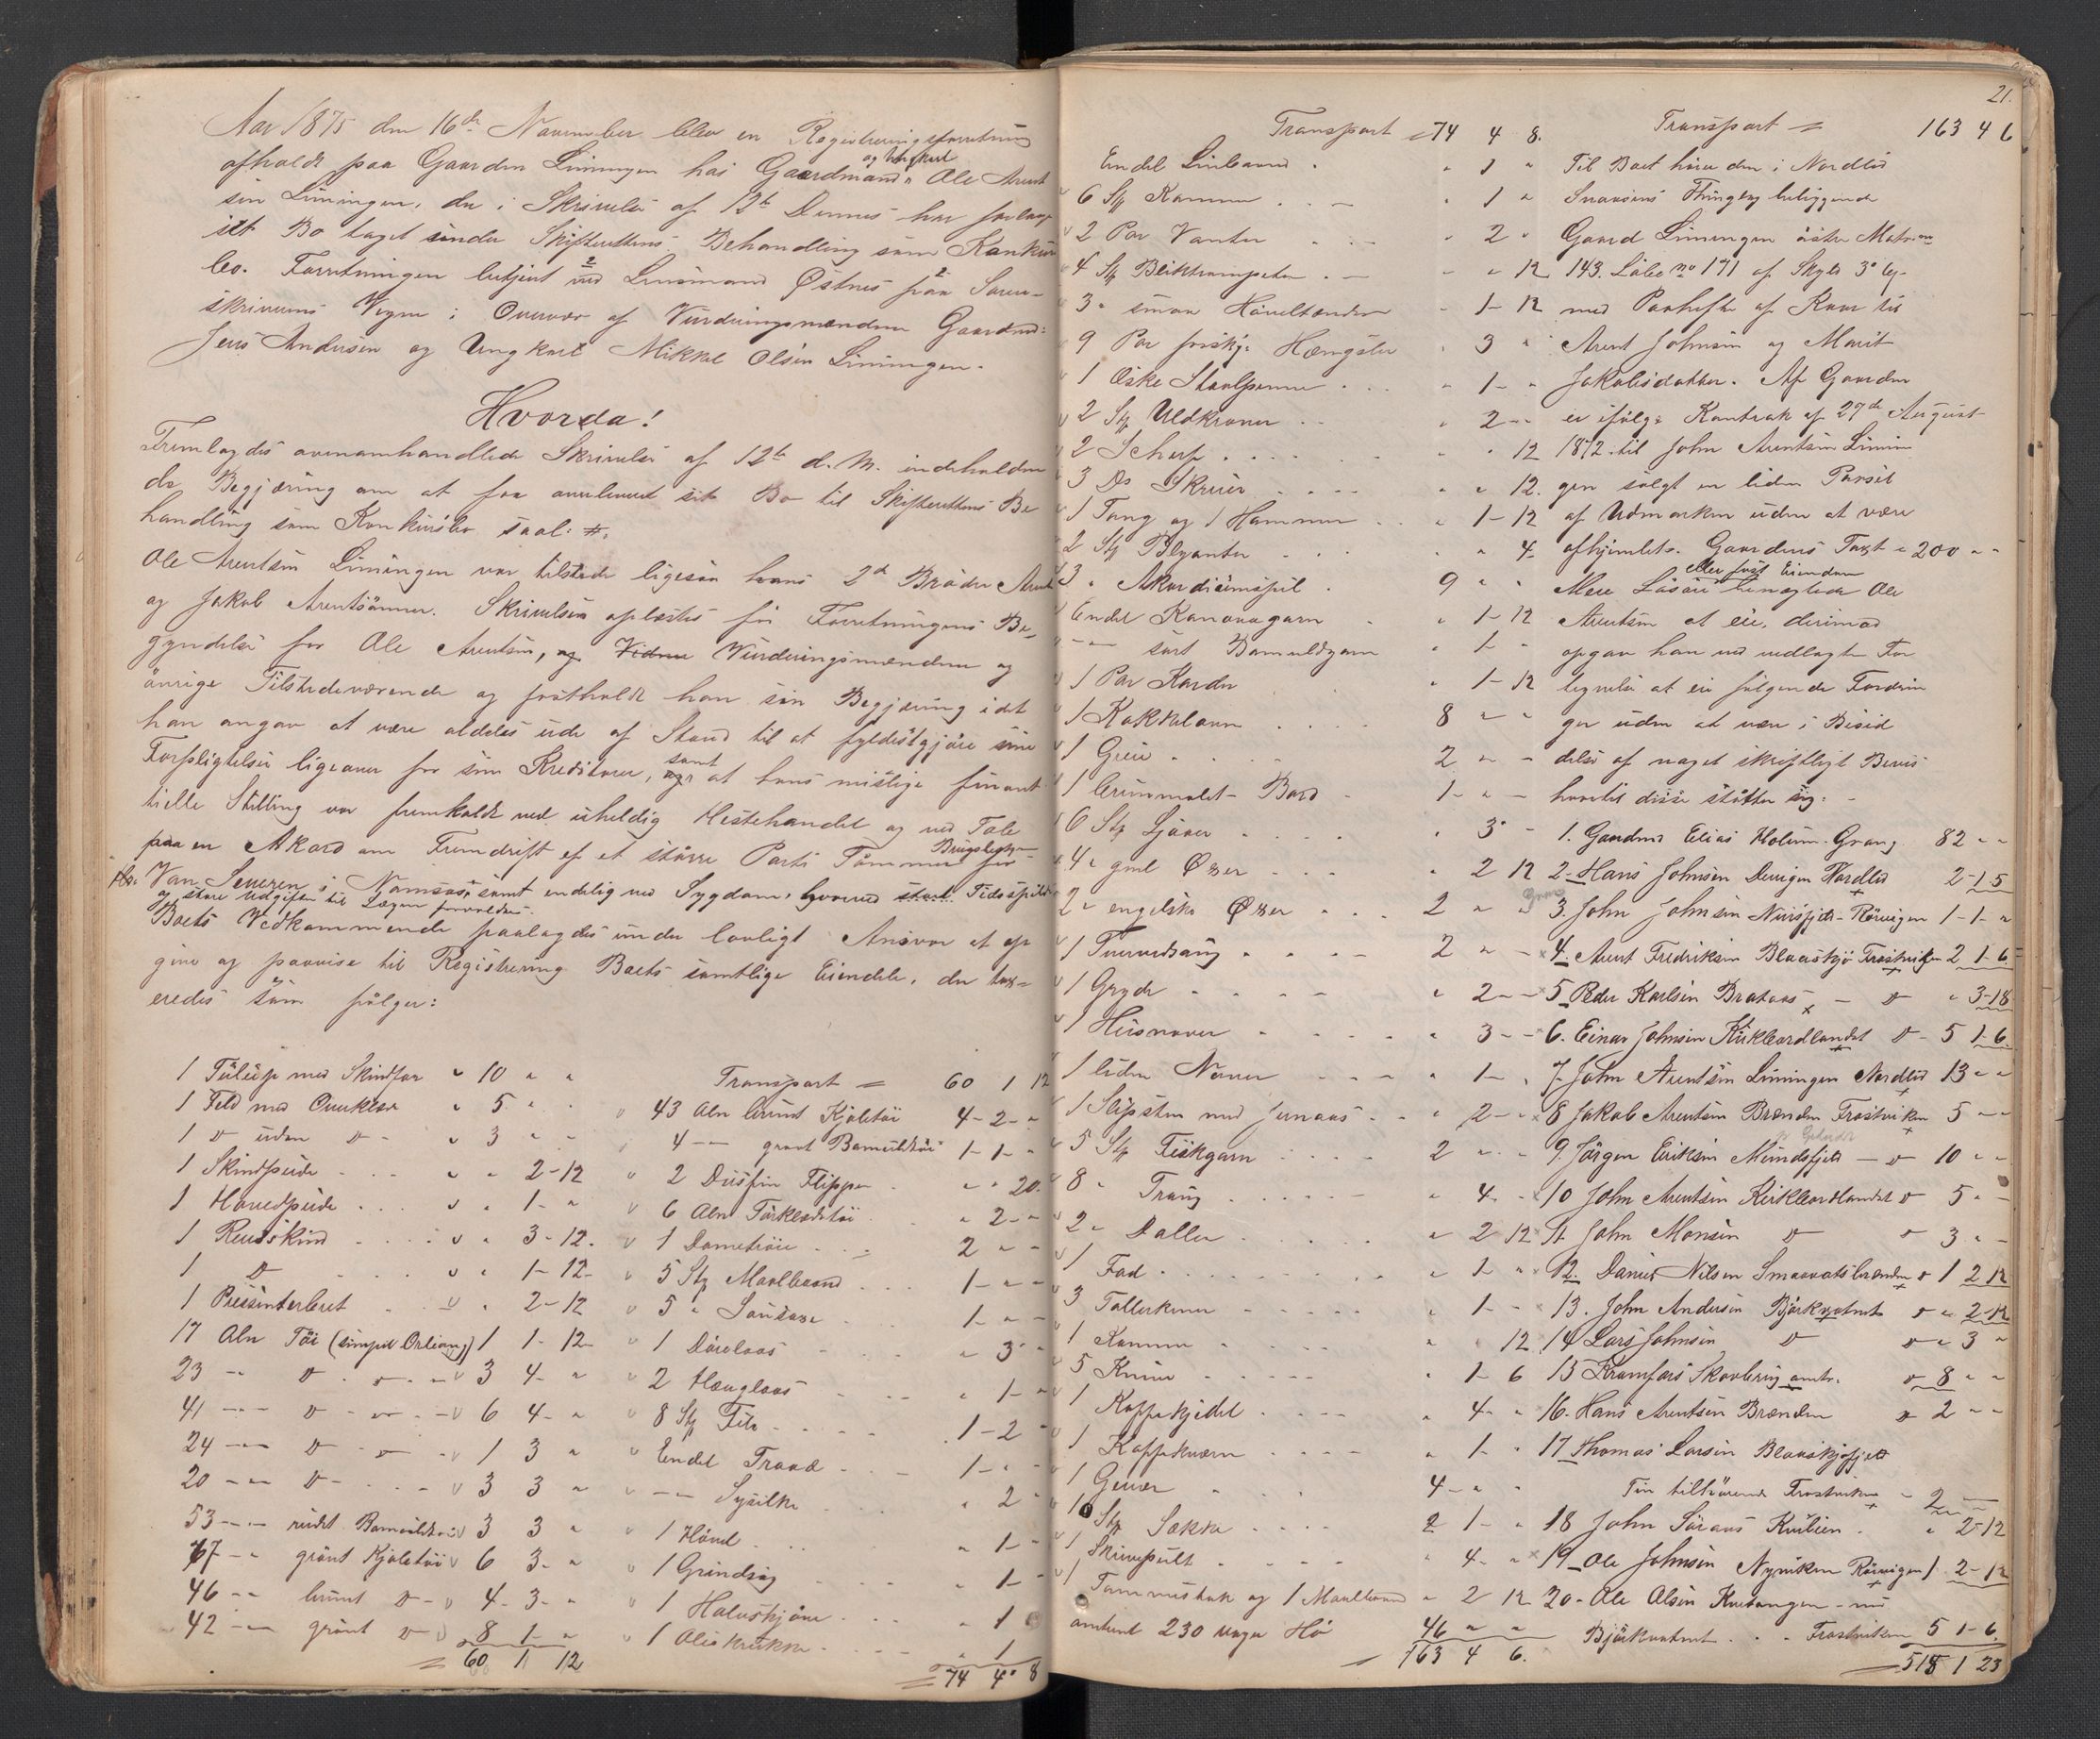 Aar 1875 den 16de November blev en Registreringsforretning
afholdt paa Gaarden Limingen hos Gaardmand og Ungkarl Ole Arent
sen Limingen, der i Skrivelse af 12te Dennes har forlangt
sit Bo taget under Skifterettens Behandling som Konkurs
bo. Forretningen betjent ved Lensmand Østnes paa Soren-
skriverens Vegne i Overvær af Vurderingsmændene Gaardmd:
Jens Andersen og Ungkarl Mikkel Olsen Limingen.
Hvorda!
Fremlagdes ovenomhandlede Skrivelse af 12te d. M. indeholden
de Begjæring om at faa overleveret sit Bo til Skifterettens Be
handling som Konkursbo saal: #.
Ole Arentsen Limingen var tilstede ligesaa hans 2de Brødre Arent
og Jakob Arentsønner. Skrivelsen oplæstes før Forretningens Be-
gyndelse for Ole Arentsen, og Vidner Vurderingsmændene og
øvrige Tilstedeværende og fastholdt han sin Begjæring idet
han angav at være aldeles ude af Stand til at fyldestgjøre sine
Forpligtelser ligeoverfor sine Kreditorer, samt at hans mislige finant
tielle Stilling var fremkaldt ved uheldig Hestehandel og ved Tab
paa en Akord om Fremdrift af et større Parti Tømmer for
Van Severen i Namsos, samt endelig ved Sygdom, hvorved Tidsspilde
og store Udgifter til Lægen forvoldtes.
Boets Vedkommende paalagdes under lovligt Ansvar at op
give og paavise til Registrering Boets samtlige Eiendele, der tax-
eredes som følger:
1 Tulup med Skindfor " 10 " "
1 Feld med Overklæde " 5 " "
1 D uden D - " 3 " "
1 Skindpude " " 2-12
1 Hovedpude " " 1 - "
1 Rensskind " " 3-12.
1 D " " 1-12
1 Pressenterbret " " 2-12
17 Aln Tøi (simpel Orleang) 1 1-12
23 -" D 3 4 - "
41 -" D 6 4 - "
24 -" D 1 3 "
20 -" D 3 3 "
53 -" rudet Bomuldstøi 3 3 "
67 -" grønt Kjoletøi 6 3 - "
46 -" brunt D - 4 - 3 - "
42 -" grønt D 8 1 - "
= 60 1 12
Transport = 60 1 12
43 Aln brunt Kjoletøi 4-2-"
4 -" graat Bomuldstøi 1-1-"
2 Dusin Flipper " " 20.
6 Aln Tørklædetøi " 2 - "
1 Dametrøie 2 " -
5 Stk Maalbaand 1 - " -
5 " Saudsaxe 1 - " -
1 Dørelaas " 3 - "
2 Hænglaas " 1 - "
8 Stk File 1 - 2 -
Endel Traad 1 - " -
-" Sysilke " 2 -
1 Høvel " 1 -
1 Grindsag " 1 -
1 Halvskjøre " 1
1 Oliekrukke " 1
= 74 4 8
21.
Transport = 74 4 8.
Endel Linbaand " 1 "
6 Stk Kammer " 1 "
2 Par Vanter " 2 "
4 Stk Bliktrompeter " " 12
3 " smaa Høveltænder " 1-12
9 Par forskj. Hængsler " 3 "
1 Æske Staalpenne " 1 - "
2 Stk Uldkroner " 2 - "
2 Scherf " " 12
3 Ds Skruer " " 12.
1 Tang og 1 Hammer " 1-12
2 Stk Blyanter " " 4
3 " Akordiumspil 9 " "
Endel Kanovagarn " 1-12
-" sort Bomuldgarn " 1 - "
1 Par Karder " 1-12
1 Kakkelovn 8 " "
1 Greie 2 " -
1 brunmalet Bord 1 - " -
6 Stk Ljaaer " 3 -
4 " gml Øxer " 2 12
2 " engelske Øxer 2 " "
1 Tvervedsaug 2 " -
1 Gryde " 2 - -
1 Husnaver " 3 - -
1 liden Naver " 1 - "
1 Slipsten med Jernaas " 2 - "
5 Stk Fiskgarn 2 " "
8 " Traug " 4 - -
2 " Daller " 2 12
1 Fad " 1 - "
3 Tallerkener " 1 - "
1 Kamme " " 12
5 Knive " 1 - 6
1 Kaffekjedel " 4 - "
1 Kaffekværn " 1 - "
1 Gevær 4 - "
10 Stk Sække 2 1 - "
1 Skrivepult " 4 - "
1 Tommestok og 1 Maalbaand " 2 12
omtrent 230 voger Hø 46 " "
= 163 4 6.
Transport = 163 4 6
Til Boet hører den i Nordlid
Snaasens Thinglag beliggende
Gaard Limingen østre Matr no
143. Løbe no 171 af Skyld 3 " 6/-
med Paahefte af Kaar til
Arent Johnsen og Marit
Jakobsdatter. Af Gaarden
er ifølge Kontrakt af 27de August
1872 til John Arentsen Limin
gen solgt en liden Parsel
af Udmarken uden at være
afhjemlet. Gaardens Taxt = 200 " "
Mere Løsøre eller fast Eiendom benægtede Ole
Arentsen at eie, derimod
opgav han ved vedlagte For
tegnelse at eie følgende Fordrin
ger uden at være i Besid
delse af noget skriftligt Bevis
hvortil disse støtter sig: -
1. Gaardmd Elias Holum Grong 82 " "
2 - Hans Johnsen Devigen Nordlid 2-15
3. John Johnsen Rørvigen 1-1-"
4. Arent Fredriksen Blaasjø Frostviken 2 1-6
5 Peder Karlsen Brataas - D " 3-18
6. Einar Johnsen Kirkbordlandet D - 5 1-6
7. John Arentsen Limingen Nordlid 13 " "
8 Jakob Arentsen Brænden Frostviken 5 - "
9. Jörgen Eriksen Mundsfjeld - D - 10 " "
10 John Arentsen Kirkbordlandet D 5 " -
11. John Monsen D D 3 " -
12. Daniel Nilsen Smaavatsbrænden D 1 2 12
13. John Andersen Bjørkvatnet D " 2-12
14 Lars Johnsen D D " 3 "
15 Kramfors Skovbetjening D 8 " "
16. Hans Arentsen Brænden D 2 " "
17 Thomas Larsen Blaasjøfjeld
Fin tilhørende Frostviken - 2 -
18 John Sörans " 2-12
19 - Ole Johnsen Nyviken Rørvigen 1 2-12
20 - Ole Olsen - nu
Bjørkvatnet Frostviken 5 1-6.
= 518 1 23